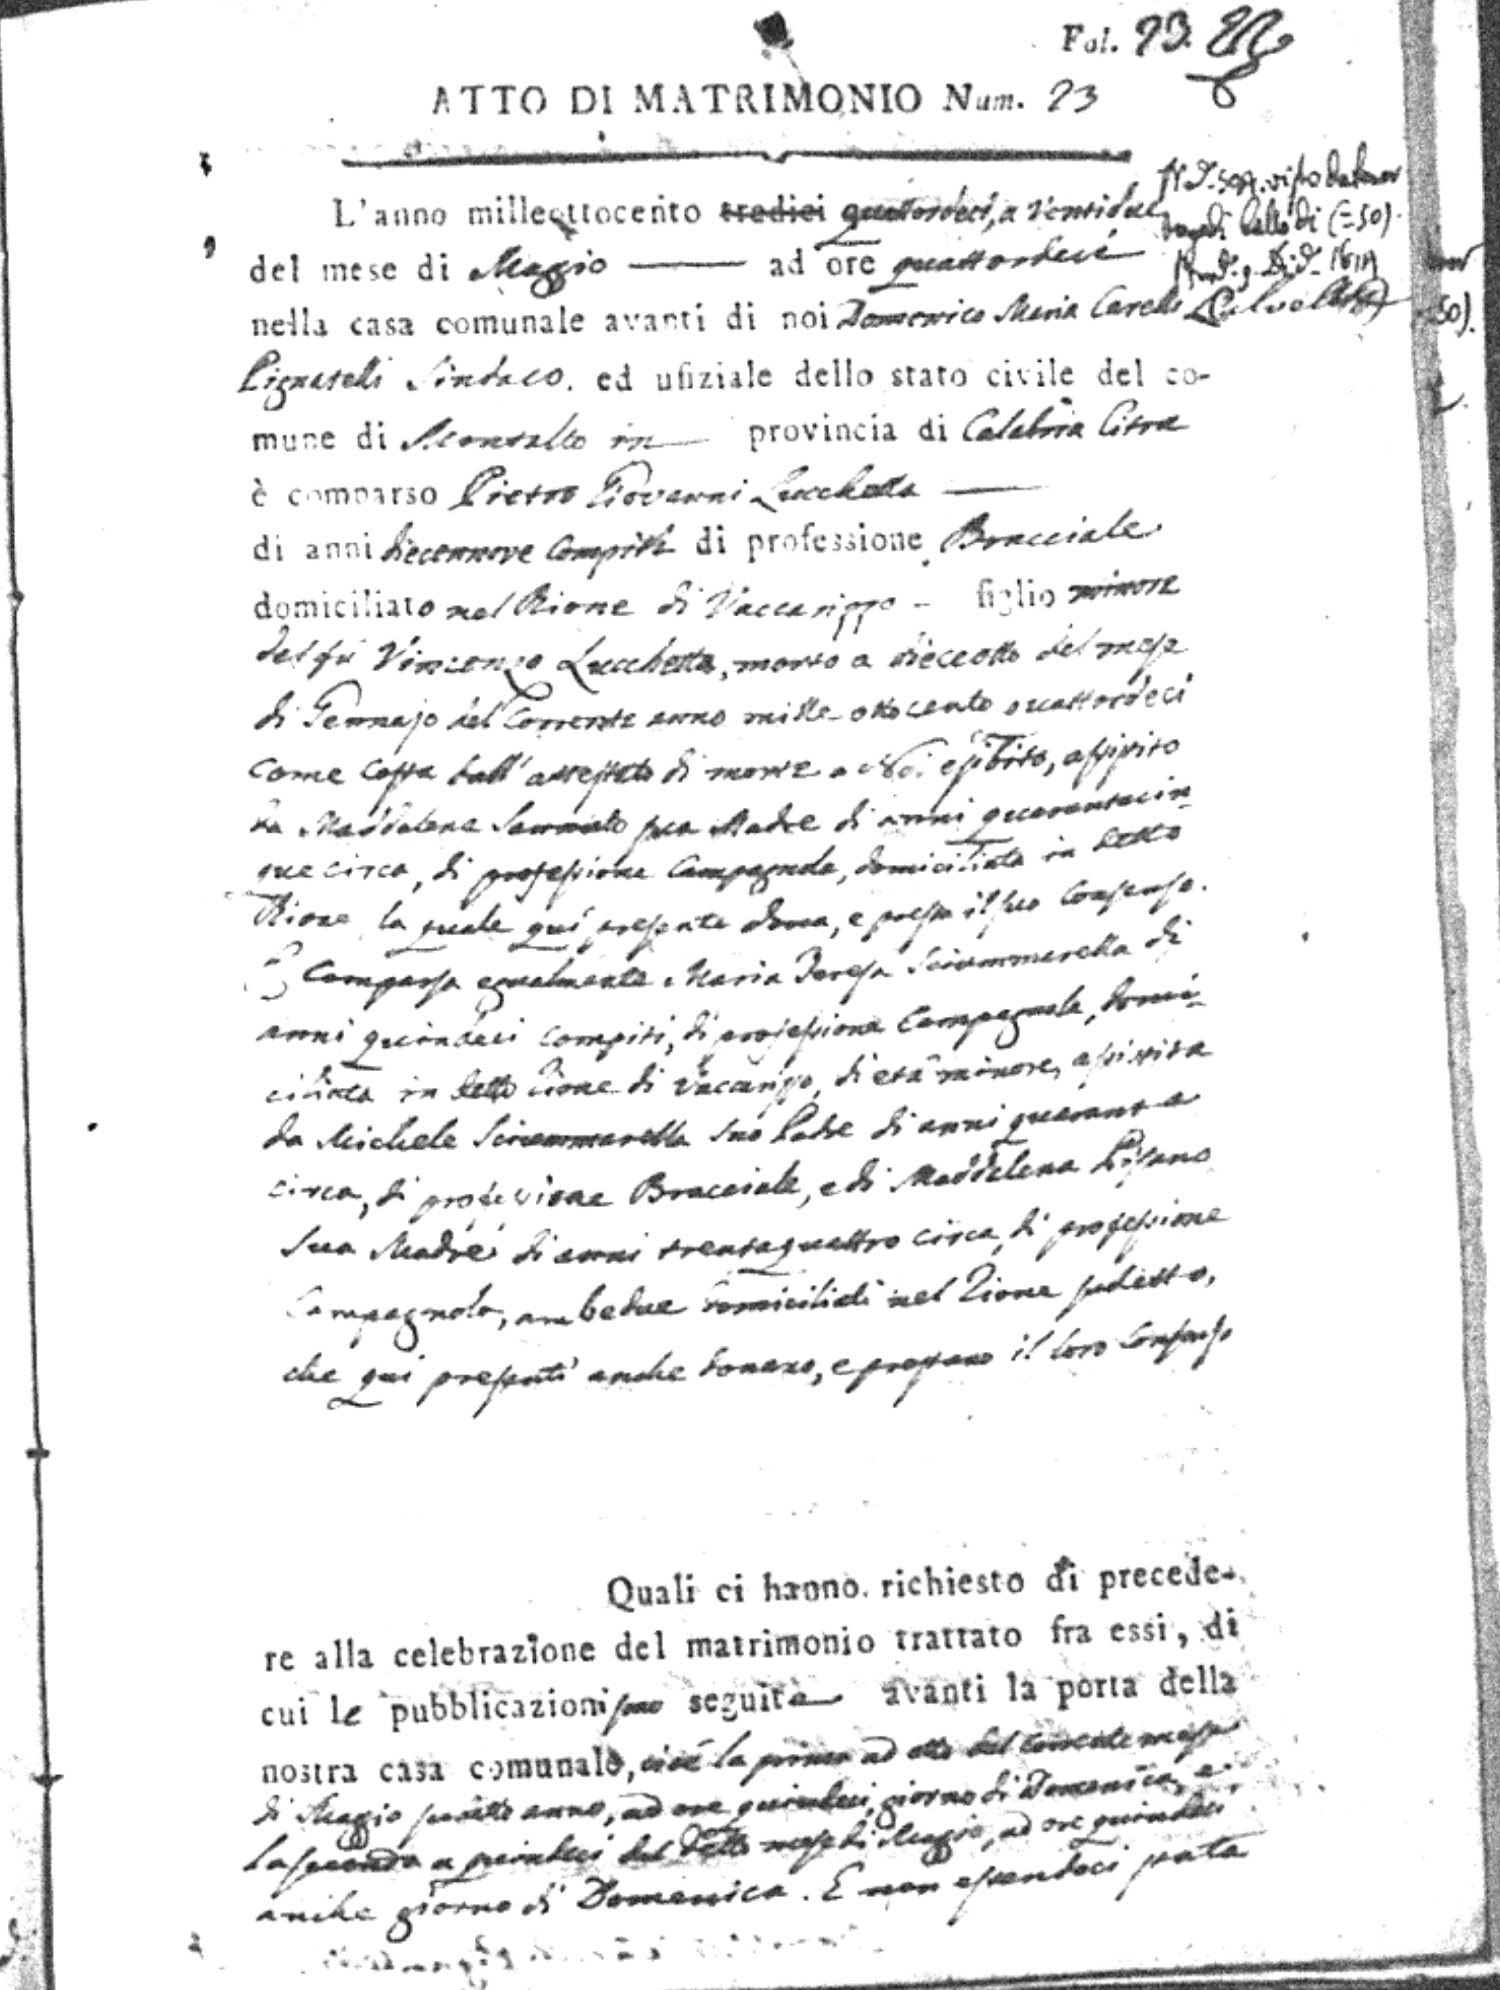 Fol. 23.
ATTO DI MATRIMONIO Num. 23
L'anno milleottocento tredici quattordeci, a ventidue
del mese di Maggio ad ore quattordeci
nella casa comunale avanti di noi Domenico Maria Carelli
Pignatelli Sindaco. ed ufiziale dello stato civile del co-
mune di Montalto in provincia di Calabria Citra
è comparso Pietro Giovanni Lucchetta
di anni diecennove compiti di professione Bracciale
domiciliato nel Rione di Vaccarizzo - figlio minore
del fù Vincenzo Lucchetta, morto a dieceotto del mese
di Gennajo del corrente anno mille ottocento quattordeci
come costa dall' attestato di morte a Noi esibito, assistito
da Maddalena sua Madre di anni quarantacin-
que circa, di professione Campagnola, domiciliata in detto
Rione, la quale quì presente dona, e presta il suo consenso.
È comparsa egualmente Maria Teresa Sciammarella di
anni quindeci compiti, di professione Campagnola, domi-
ciliata in detto Rione di Vaccarizzo, di età minore, assistita
da Michele Sciammarella suo Padre di anni quaranta
circa, di professione Bracciale, e di Maddalena Pisano
sua Madre di anni trentaquattro circa, di professione
Campagnola, ambedue domiciliati nel Rione sudetto,
che quì presenti anche donano, e prestano il loro consenso
Quali ci hanno richiesto di precede-
re alla celebrazione del matrimonio trattato fra essi, di
cui le pubblicazioni sono seguite avanti la porta della
nostra casa comunale, cioè la prima ad otto del corrente mese
di Maggio sudetto anno, ad ore quindeci, giorno di Domenica, e
la seconda a quindeci del detto mese di Maggio, ad ore quindeci
anche giorno di Domenica. E non essendoci stata